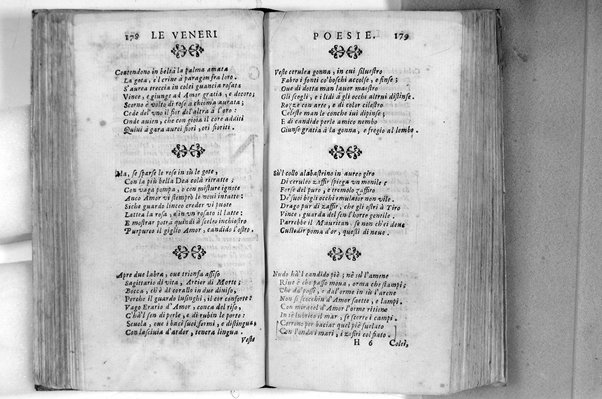 178 LE VENERI
Contendono in beltà la palma amata
La gota, e'l crine à paragon fra loro.
S'aurea treccia in colei guancia rosata
Vince, e giunge ad Amor gratia, e decoro;
Scorno è volto di rose à chioma aurata;
Cede del'vno il fior del'altra à l'oro:
Onde auien, che con gioia il core additi
Quinci à gara aurei fiori, ori fioriti.
Ma, se sparse le rose in sù le gote,
Con la più bella Dea colà ritratte;
Con vaga pompa, e con misture ignote
Anco Amor vi stemprò le neui intatte:
Sì che guardo linceo creder vi puote
Latte la rosa, e in vn rosato il latte:
E mostrar potrà quindi à folto inchiostro
Purpureo il giglio Amor, candido l'ostro.
Apre due labra, oue trionfa assiso
Sagittario di vita, Artier di Morte;
Bocca, ch'è di corallo in due diuiso,
Perche il guardo lusinghi, il cor conforte:
Vago Erario d'Amor, conca del riso,
C'hà'l sen di perle, e di rubin le porte:
Scuola, oue i baci suoi formi, e distingua
Con lasciuia d'ardor, tenera lingua.
Veste
POESIE. 179
Veste cerulea gonna, in cui siluestro
Fabro i fonti co'boschi accolse, e finse;
Due di dotta man lauor maestro
Gli scogli, e i lidi à gli occhi altrui distinse.
Rozze con arte, e di color cilestro
Celeste man le conche iui dipinse;
E di candide perle amico nembo
Giunse gratia à la gonna, e fregio al lembo.
Sù'l collo alabastrino in aureo giro
Di ceruleo zaffir spiega vn monile;
Forse del puro, e tremolo zaffiro
De'suoi begli occhi emulator non vile.
Drago pur di zaffir, che gli ostri à Tiro
Vince, guarda del sen l'horte gentile.
Parrebbe il Mauritan, se non ch'ei deue
Custodir poma d'or, questi di neue.
Nudo hà'l candido piè; nè sù l'amene
Riue è che passo moua, orma che stampi;
Che da'passi, e dal'orme in sù l'arene
Non si scocchin d'Amor saette, e lampi.
Con miracol d'Amor l'orme ritiene
In sè lubrico il mar, se scorre i campi.
Corrono per baciar quel piè furlato
Con l'onda i mari, i zefiri col fiato.
H 6 Colei,